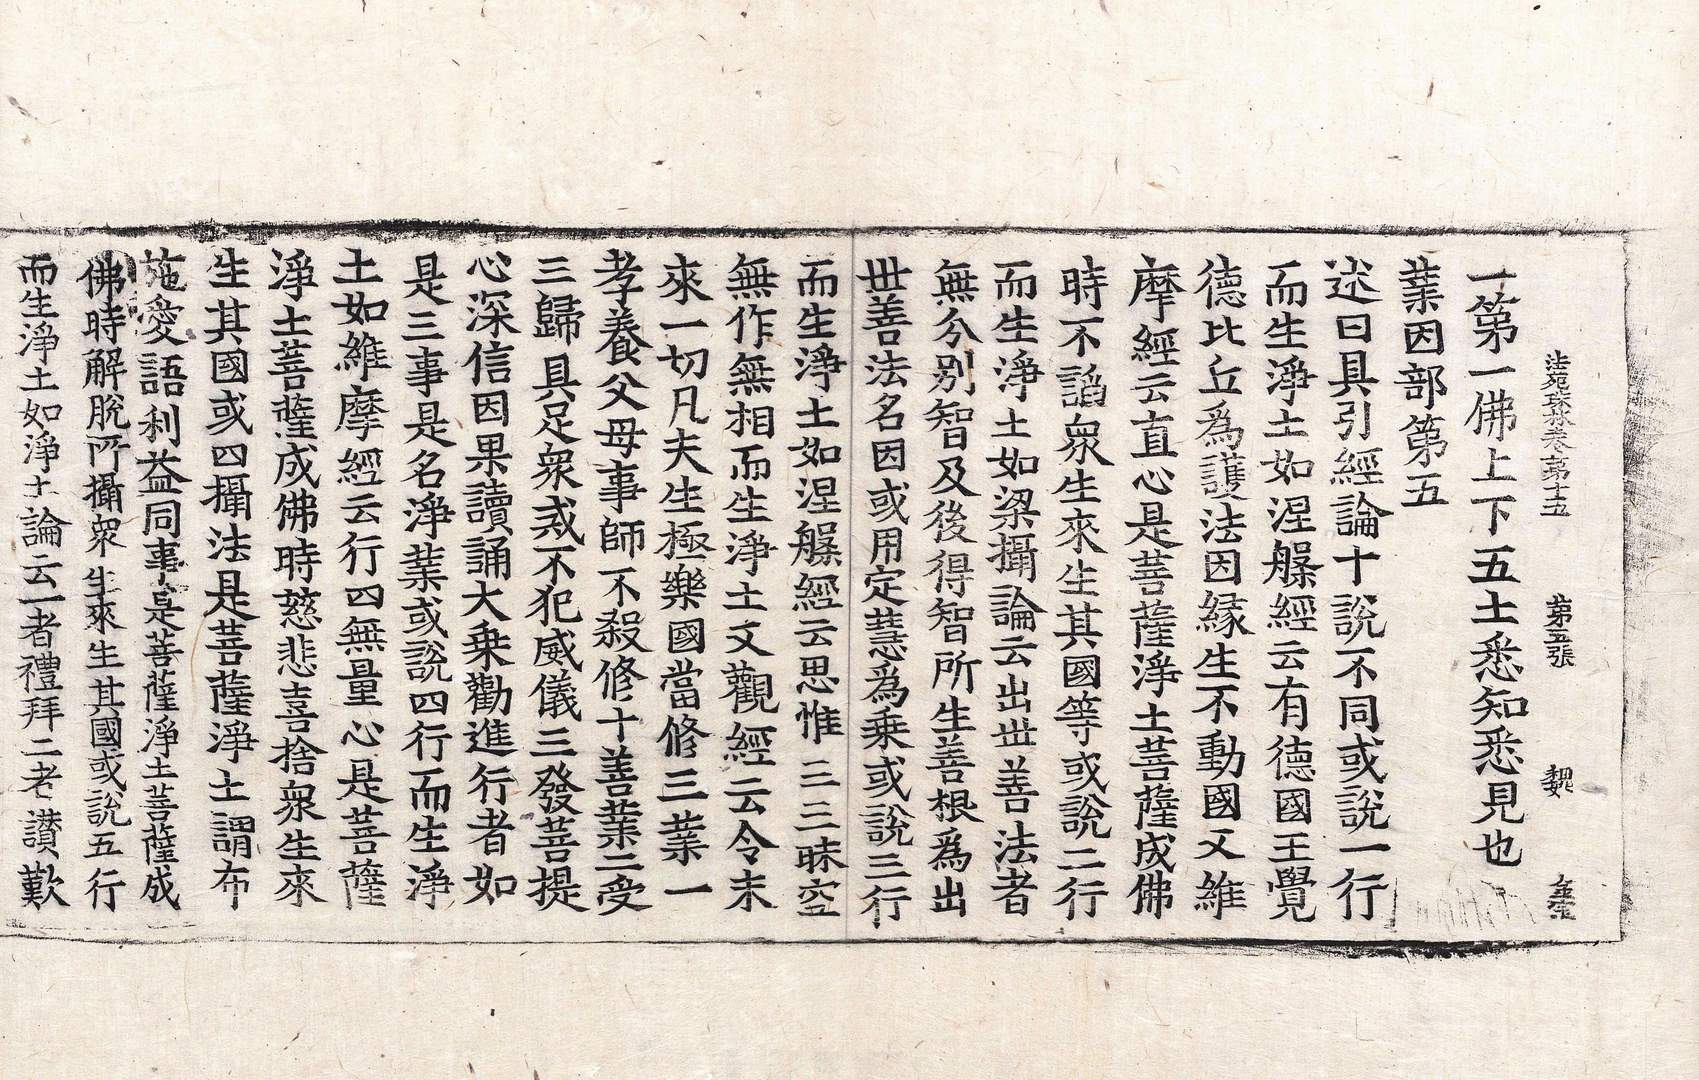 法苑珠林卷第十五 第五張 魏
一第一佛上下五土悉知悉見也
業因部第五
述曰具引經論十說不同或說一行
而生淨土如涅槃經云有德國王覺
德比丘爲護法因緣生不動國又維
摩經云直心是菩薩淨土菩薩成佛
時不諂衆生來生其國等或說二行
而生淨土如梁攝論云出世善法者
無分別智及後得智所生善根爲出
世善法名因或用定慧爲乗或說三行
而生淨土如涅槃經云思惟三三昧空
無作無相而生淨土又觀經云令未
來一切凡夫生極樂國當修三業一
孝養父母事師不殺修十善業二受
三歸具足衆戒不犯威儀三發菩提
心深信因果讀誦大乗勸進行者如
是三事是名淨業或說四行而生淨
土如維摩經云行四無量心是菩薩
淨土菩薩成佛時慈悲喜捨衆生來
生其國或四攝法是菩薩淨土謂布
施愛語利益同事是菩薩淨土菩薩成
佛時解脫所攝衆生來生其國或說五行
而生淨土如淨土論云一者禮拜二者讚歎